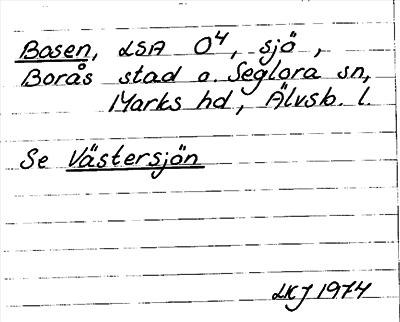 Basen, LSA O⁴, sjö,
Borås stad o. Seglora sn,
Marks hd, Älvsb. l.
Se Västersjön
LKJ 1974